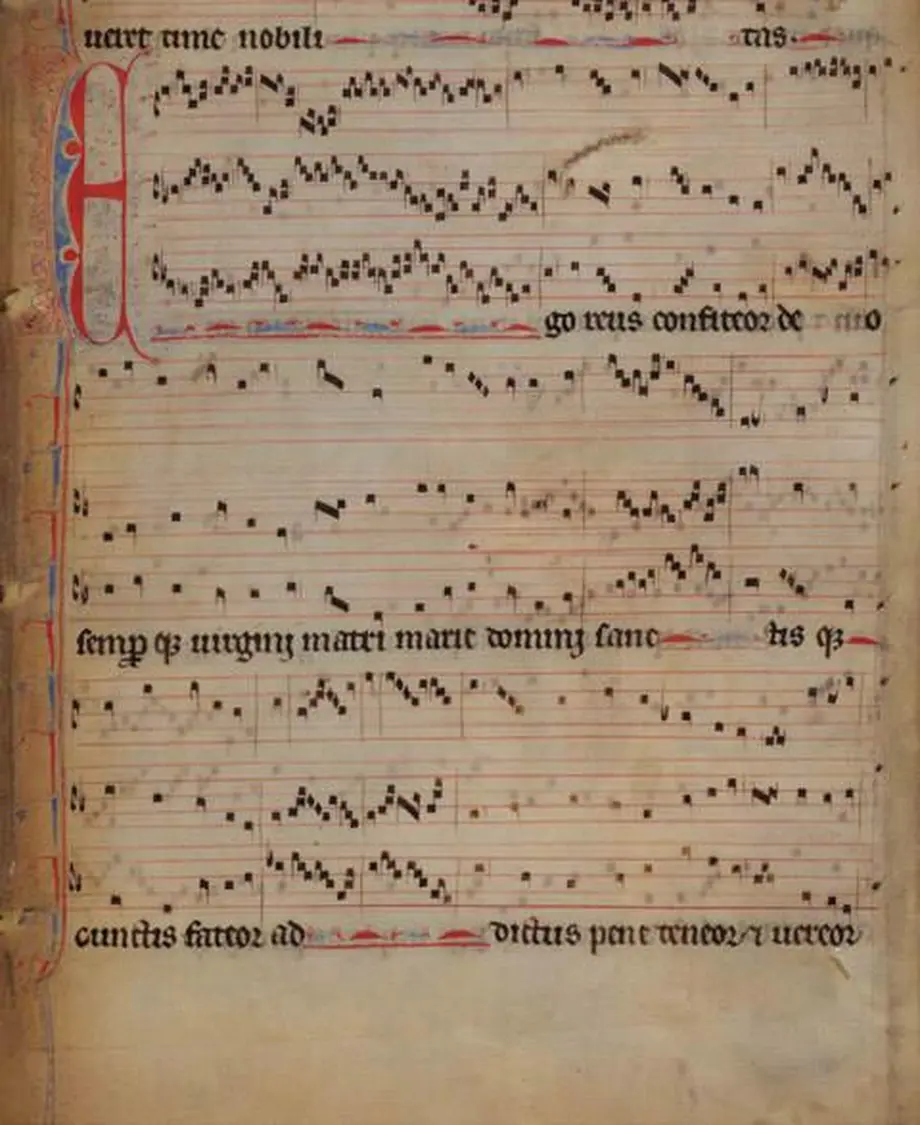 ueire time nobili tas.
Ego reus confiteor deo
semp qz uirginj matri marie dominj sanc tis qz
cunctis fateor ad dictus pene teneor ⁊ uereor